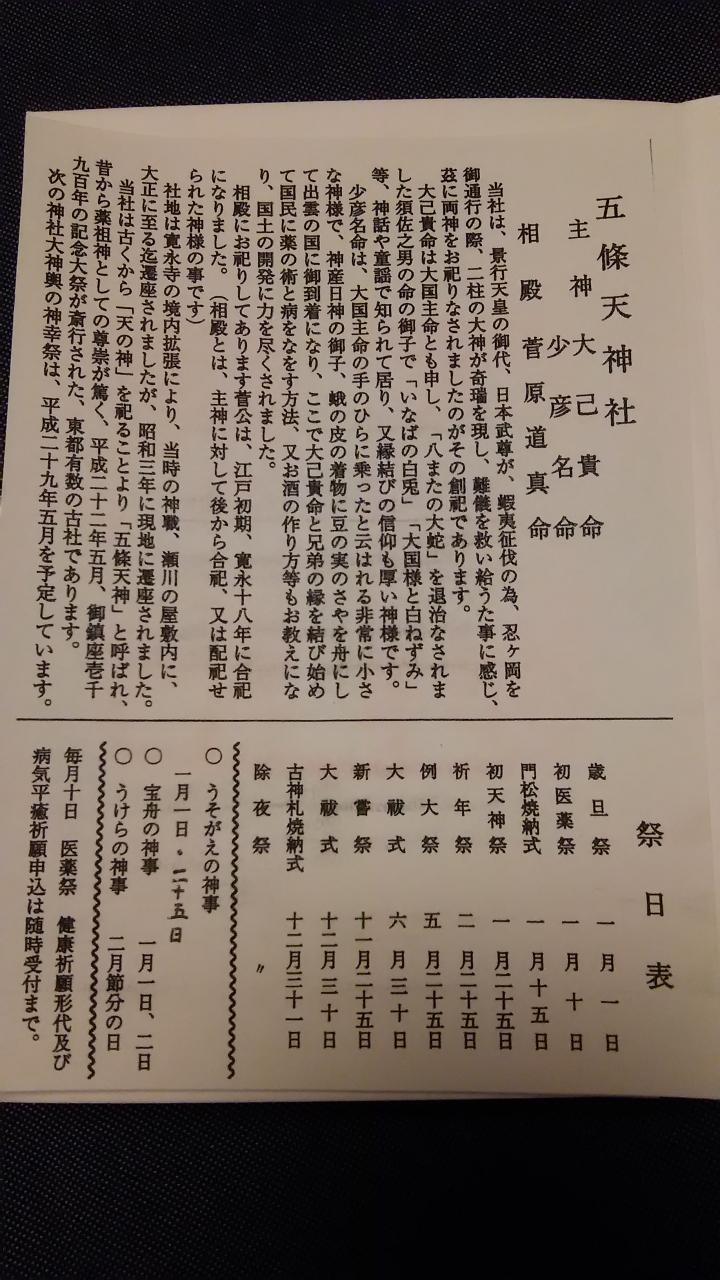 五條天神社
主神 大己貴命
少彦名命
相殿 菅原道真命
当社は、景行天皇の御代、日本武尊が、蝦夷征伐の為、忍ヶ岡を
御通行の際、二柱の大神が奇瑞を現し、難儀を救い給うた事に感じ、
茲に両神をお祀りなされましたのがその創祀であります。
大己貴命は大国主命とも申し、「八またの大蛇」を退治なされま
した須佐之男の命の御子で「いなばの白兎」「大国様と白ねずみ」
等、神話や童謡で知られて居り、又縁結びの信仰も厚い神様です。
少彦名命は、大国主命の手のひらに乗ったと云はれる非常に小さ
な神様で、神産日神の御子、蛾の皮の着物に豆の実のさやを舟にし
て出雲の国に御到着になり、ここで大己貴命と兄弟の縁を結び始め
て国民に薬の術と病をなをす方法、又お酒の作り方等もお教えにな
り、国土の開発に力を尽くされました。
相殿にお祀りしてあります菅公は、江戸初期、寛永十八年に合祀
になりました。（相殿とは、主神に対して後から合祀、又は配祀せ
られた神様の事です）
社地は寛永寺の境内拡張により、当時の神職、瀬川の屋敷内に、
大正に至る迄遷座されましたが、昭和三年に現地に遷座されました。
当社は古くから「天の神」を祀ることより「五條天神」と呼ばれ、
昔から薬祖神としての尊崇が篤く、平成二十二年五月、御鎮座壱千
九百年の記念大祭が斎行された、東都有数の古社であります。
次の神社大神輿の神幸祭は、平成二十九年五月を予定しています。
祭日表
歳旦祭 一月一日
初医薬祭 一月十日
門松焼納式 一月十五日
初天神祭 一月二十五日
祈年祭 二月二十五日
例大祭 五月二十五日
大祓式 六月三十日
新嘗祭 十一月二十五日
大祓式 十二月三十日
古神札焼納式 十二月三十一日
除夜祭 〃
〇 うそがえの神事
一月一日・二十五日
〇 宝舟の神事 一月一日、二日
〇 うけらの神事 二月節分の日
毎月十日 医薬祭 健康祈願形代及び
病気平癒祈願申込は随時受付まで。